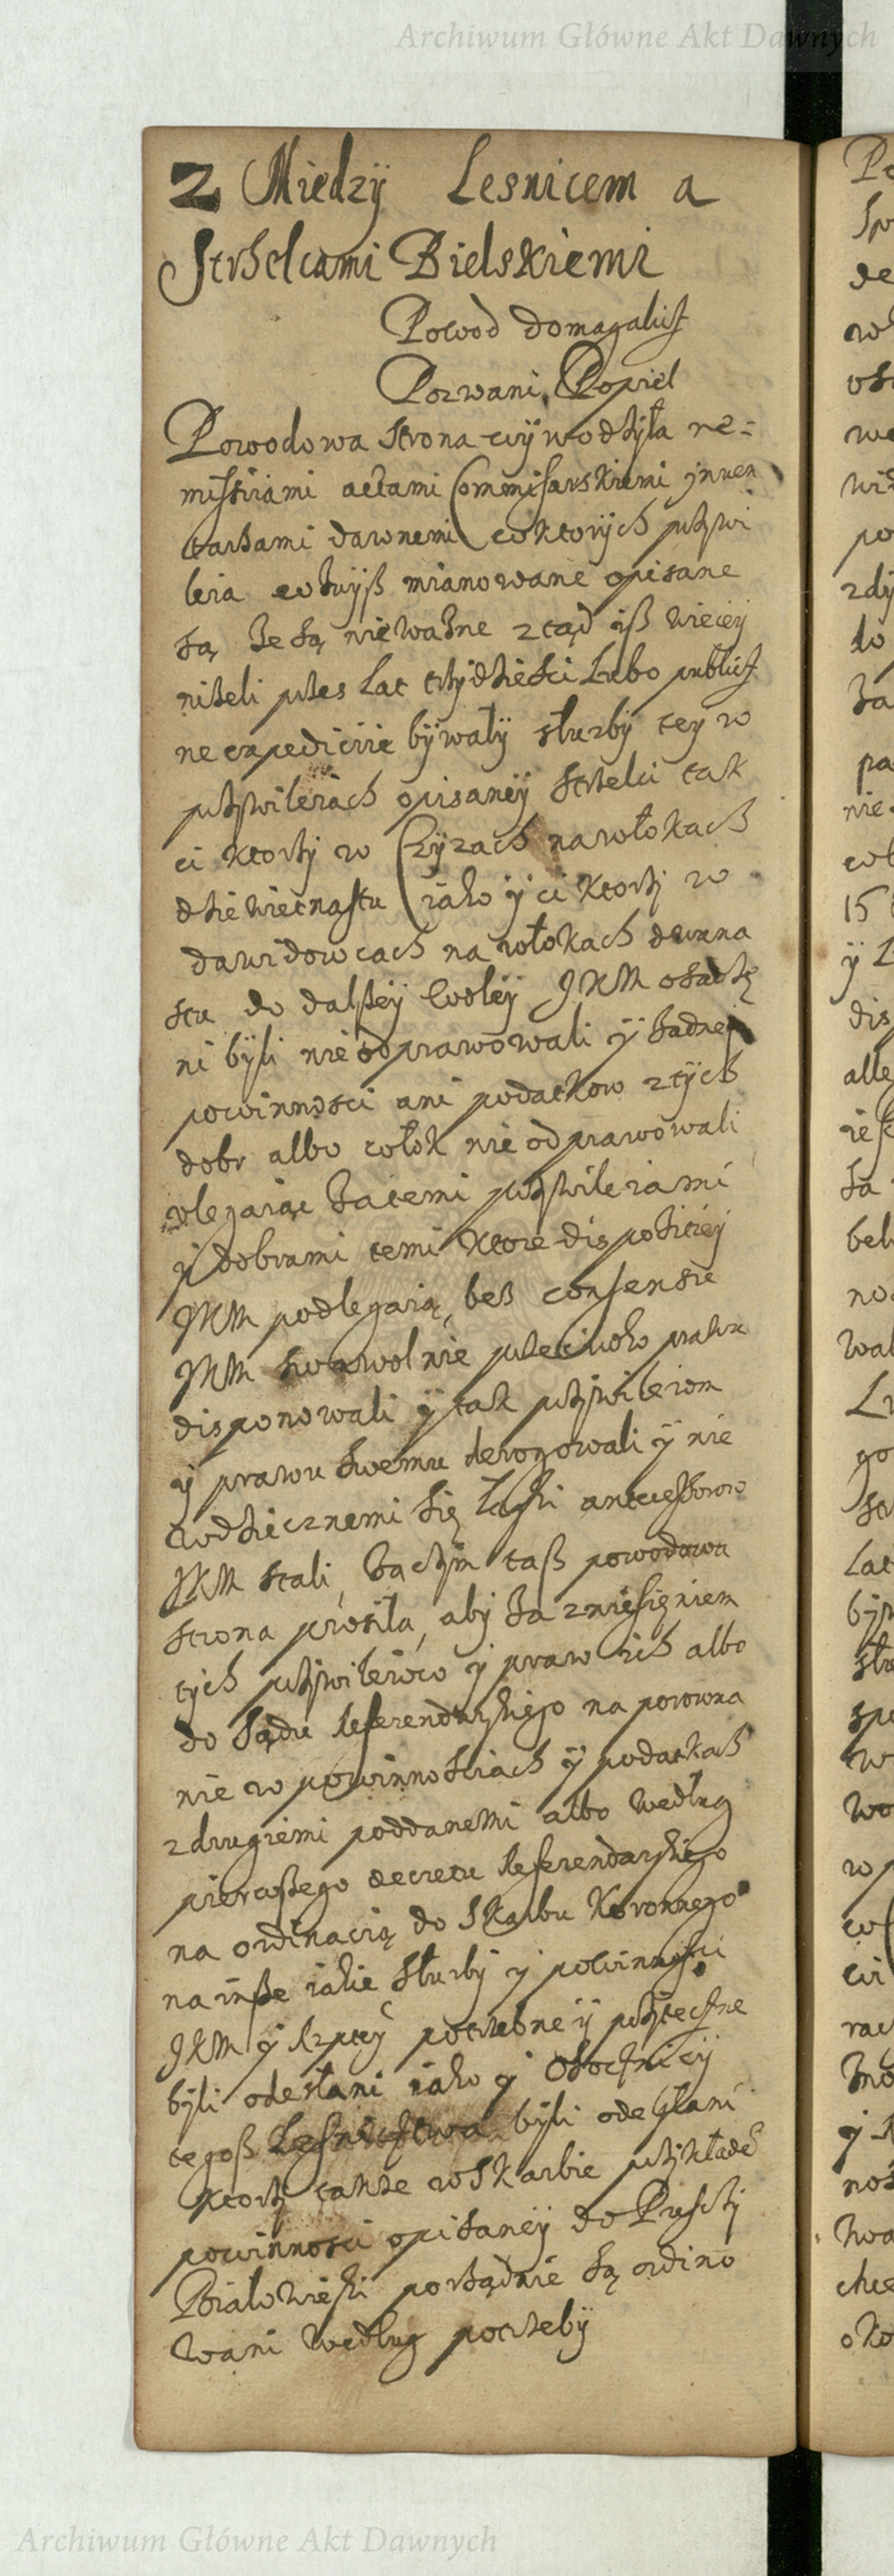 Archiwum Główne Akt Dawnych
2 Miedzÿ Lesnicem a
Strżelcami Bielskiemi
Powod domagalius
Pozwani, Popiel
Powodowa strona wÿwodżyła re=
missiiami actami Commissarskiemi jnwen
tarżami dawnemi w ktorÿch prżÿwi
leia wżwÿß mianowane opisane
są że są nieważne ztąd iß wiecey
niżeli przes lat trżÿdżiesci lubo publicż
ne expediciie bÿwałÿ służbÿ teÿ w
prżÿwileiach opisaneÿ strżelci tak
ci ktorżÿ w Czÿżach na włokach
dżiewietnastu iako ÿ ci ktorżÿ w
dawidowcach na włokach dwuna
stu do dalßeÿ woleÿ JKM osadżę
ni bÿli nie odprawowali ÿ żadneÿ
powinnosci ani podatkow z tÿch
dobr albo włok nie odprawowali
ulegaiąc żatemi prżÿwileiami
ÿ dobrami temi ktore dispożicieÿ
JKM podlegaią, beß consensie
JKM swawolnie przeciwko prawu
disponowali ÿ tak prżÿwileiom
ÿ prawu swemu derogowali ÿ nie
wdżiecznemi się łaski antecessorow
JKM stali, żaczÿm taß powodowa
strona prosiła, abÿ za zniesięniem
tÿch prżÿwileiow ÿ praw ich albo
do sądu Referendarskiego na porowna
nie w powinnosciach ÿ podatkach
z drugiemi poddanemi albo według
pierwßego decretu Referendarskiego
na ordinacią do Skarbu Koronnego
na inße iakie służbÿ ÿ powinnosci
JKM ÿ Rzptey potrżebne ÿ pożÿteczne
bÿli odesłani iako ÿ Osocznicÿ
tegoß Lesnictwa bÿli odesłani
ktorżÿ także w Skarbie prżÿkładē
powinnosci opisaneÿ do Puscżÿ
Białowieski porżądnie są ordino
wani według potrżebÿ
Archiwum Główne Akt Dawnych